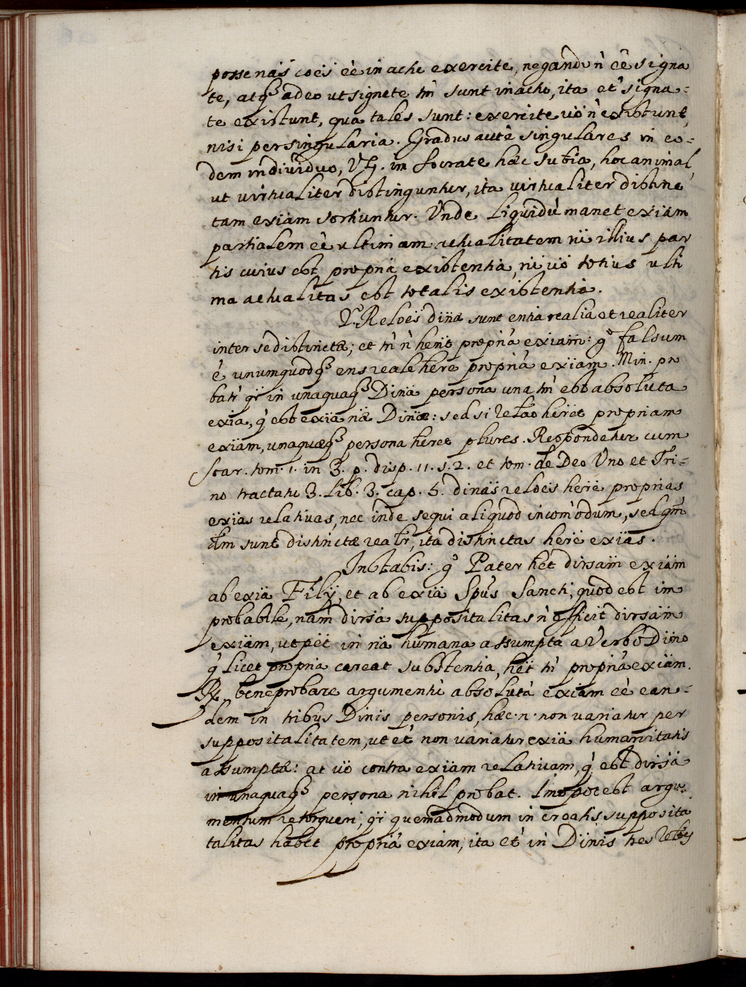 posse nãs coẽs eẽ in actu exercite, negandũ ñ eẽ signa
te, atq3 adeo ut signate tñ sunt in actu, ita et signa-
te existunt, qua tales sunt: exercite uõ ñ existunt
nisi per singularia. Gradus autẽ singulares in eo-
dem indiuiduo, V.G. in Socrate hæc subiã, hoc animal,
ut uirtualiter distinguntur, ita uirtualiter distinc
tam exiam sortiuntur. Unde liquidũ manet exiam
partialem eẽ ultimam actualitatem nõ illius par
tis cuius est propriã existentia, nõ uõ totius ulti
ma actualitas est totalis existentia.
2.º Reloẽs diũæ sunt entia realia et realiter
inter se distinctæ; et tñ ñ hẽnt propriã exiam: gº falsum
ẽ unumquodq3 ens reale hẽre propriã exiam. Min. pro
batr qã in unaquaq3 Diũa persona una tñ est absoluta
exia, q̃ est exia nãæ Diũæ: sed si relaõ hẽret propriam
exiam, unaquæq3 persona hẽret plures. Respondetur cum
Soar. tom. 1. in 3. p. disp. 11. s. 2. et tom. de Deo Uno et Tri-
no tractatu 3. lib. 3. cap. 5. diũas reloẽs hẽre proprias
exias relatiuas, nec inde sequi aliquod incomodum, sed qm̃
dm̃ sunt distinctæ realr, ita distinctas hẽre exias.
Instabis: gº Pater hẽt diũrsam exiam
ab exiã Filij, et ab exiã Spũs Sancti; quod est im
probabile, nam diũrsã suppositalitas ñ efficit diũrsam
exiam, ut pãt in nã humana assumpta a Verbo Diũo
q̃ licet propria careat subsistentia, hẽt tñ propriã exiam.
R. bene probare argumentũ absolutã exiam eẽ ean-
dem in tribus Diũis personis, hæc .n. non uariatur per
suppositalitatem, ut et non uariatur exiã humanitatis
assumptæ: at uõ contra exiam relatiuam, q̃ est diũrsã
in unaquaq3 persona nihil probat. Imo potest argu-
mentum retorqueri, qã quemadmodum in creatis supposita
talitas habet propriã exiam, ita et in Diũis tres